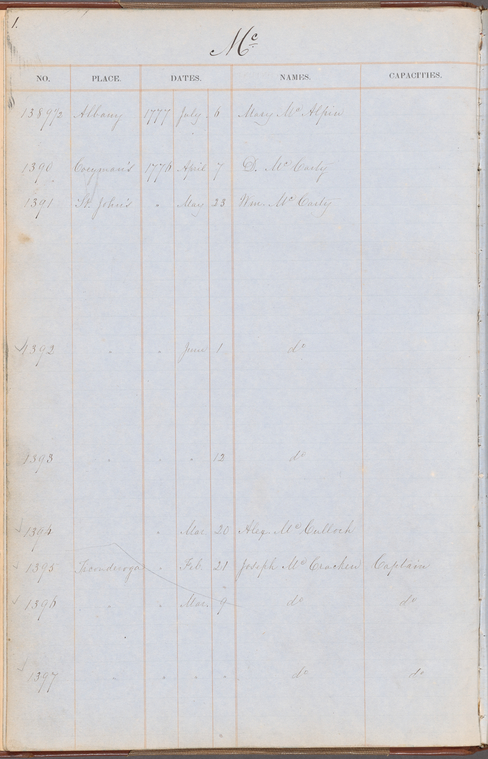 1.
Mc
NO. PLACE. DATES. NAMES. CAPACITIES.
1389½ Albany 1777 July 6 Mary Mc Alpin
1390 Coeyman's 1776 April 7 D. Mc Carty
1391 St. John's " May 23 Wm. Mc Carty
1392 " " June 1 do
1393 " " " 12 do
1394 " Mar. 20 Alex Mc Culloch
1395 Ticonderoga " Feb. 21 Joseph Mc Cracken Captain
1396 " " Mar. 9 do do
1397 " " " " do do